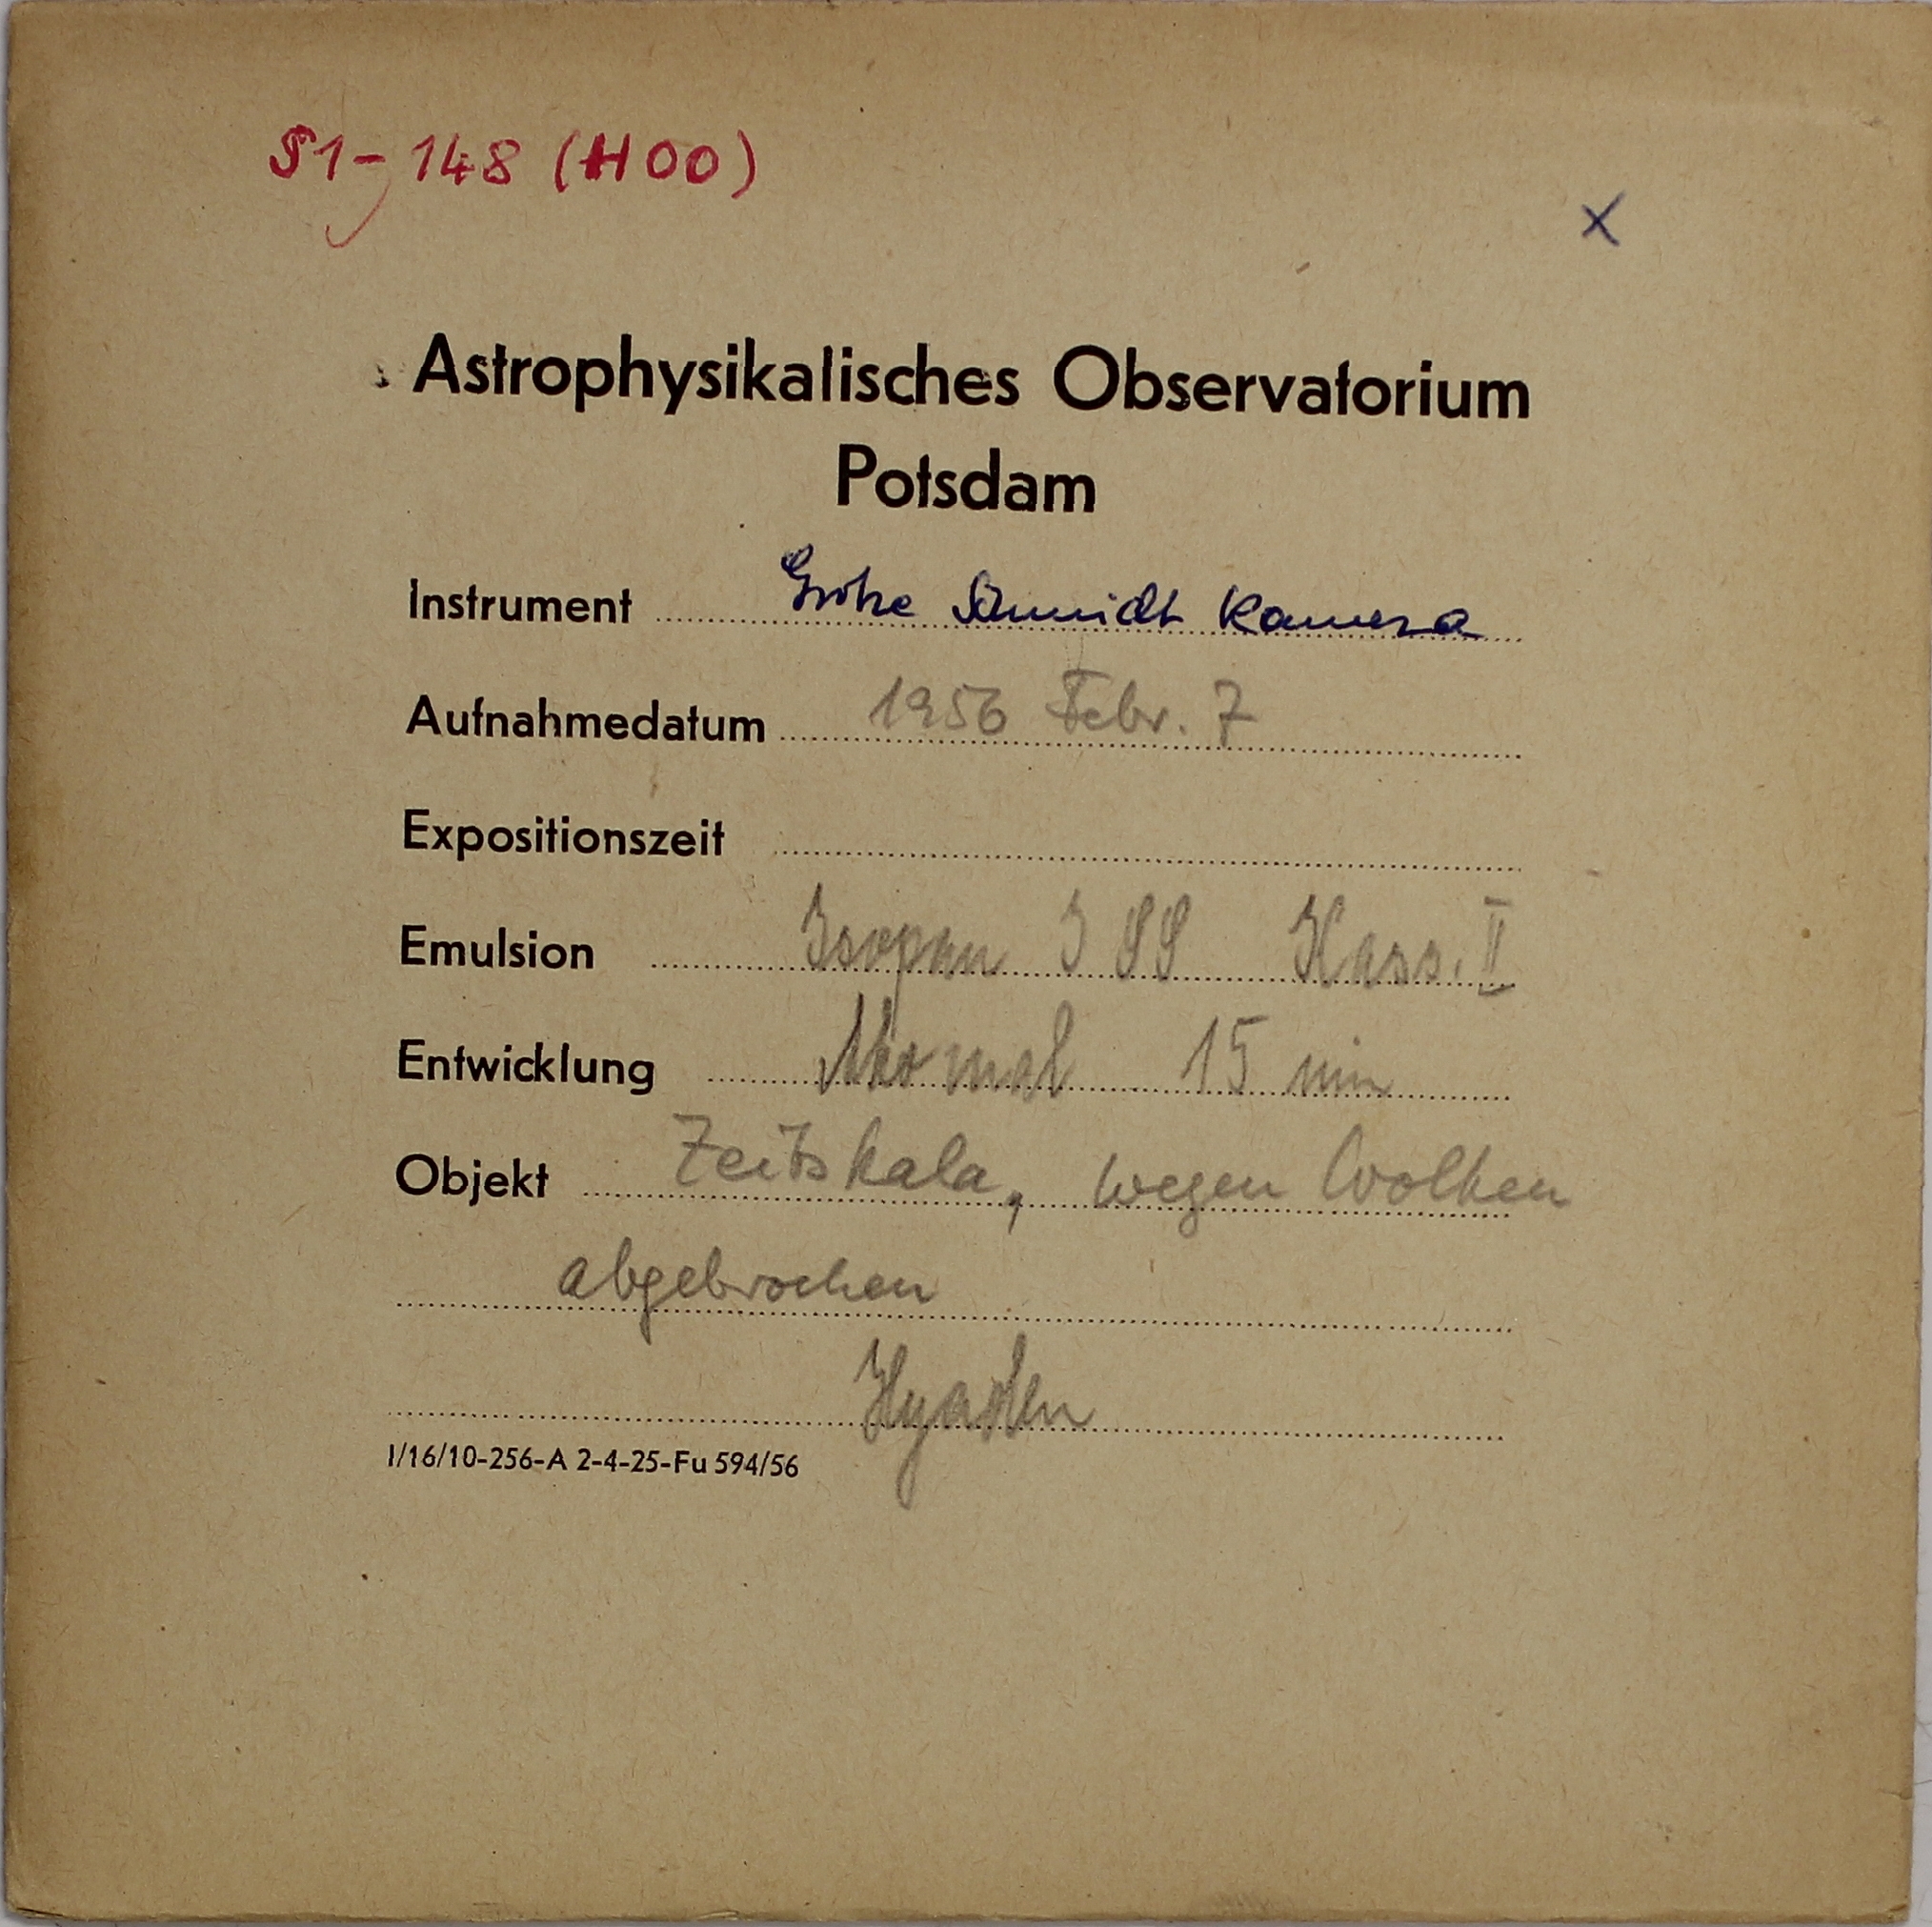 S1-148 (H00)
x
Astrophysikalisches Observatorium
Potsdam
Instrument Große Schmidt Kamera
Aufnahmedatum 1956 Febr. 7
Expositionszeit
Emulsion Isopan ISS Kass. II
Entwicklung Normal 15 min
Objekt Zeitskala, wegen Wolken
abgebrochen
Hyaden
I/16/10-256-A 2-4-25-Fu 594/56